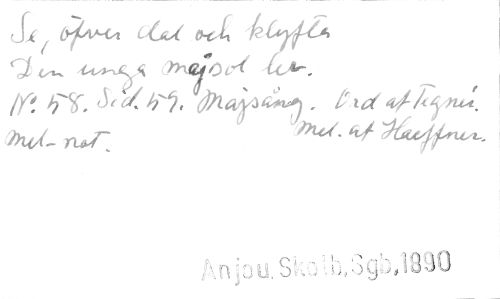 Se, öfver dal och klyfta
Den unga majsol ler.
No. 58. Sid. 59. Majsång. Ord af Tegnér.
Mel-not. Mel. af Haeffner.
Anjou, Skolb, Sgb, 1890